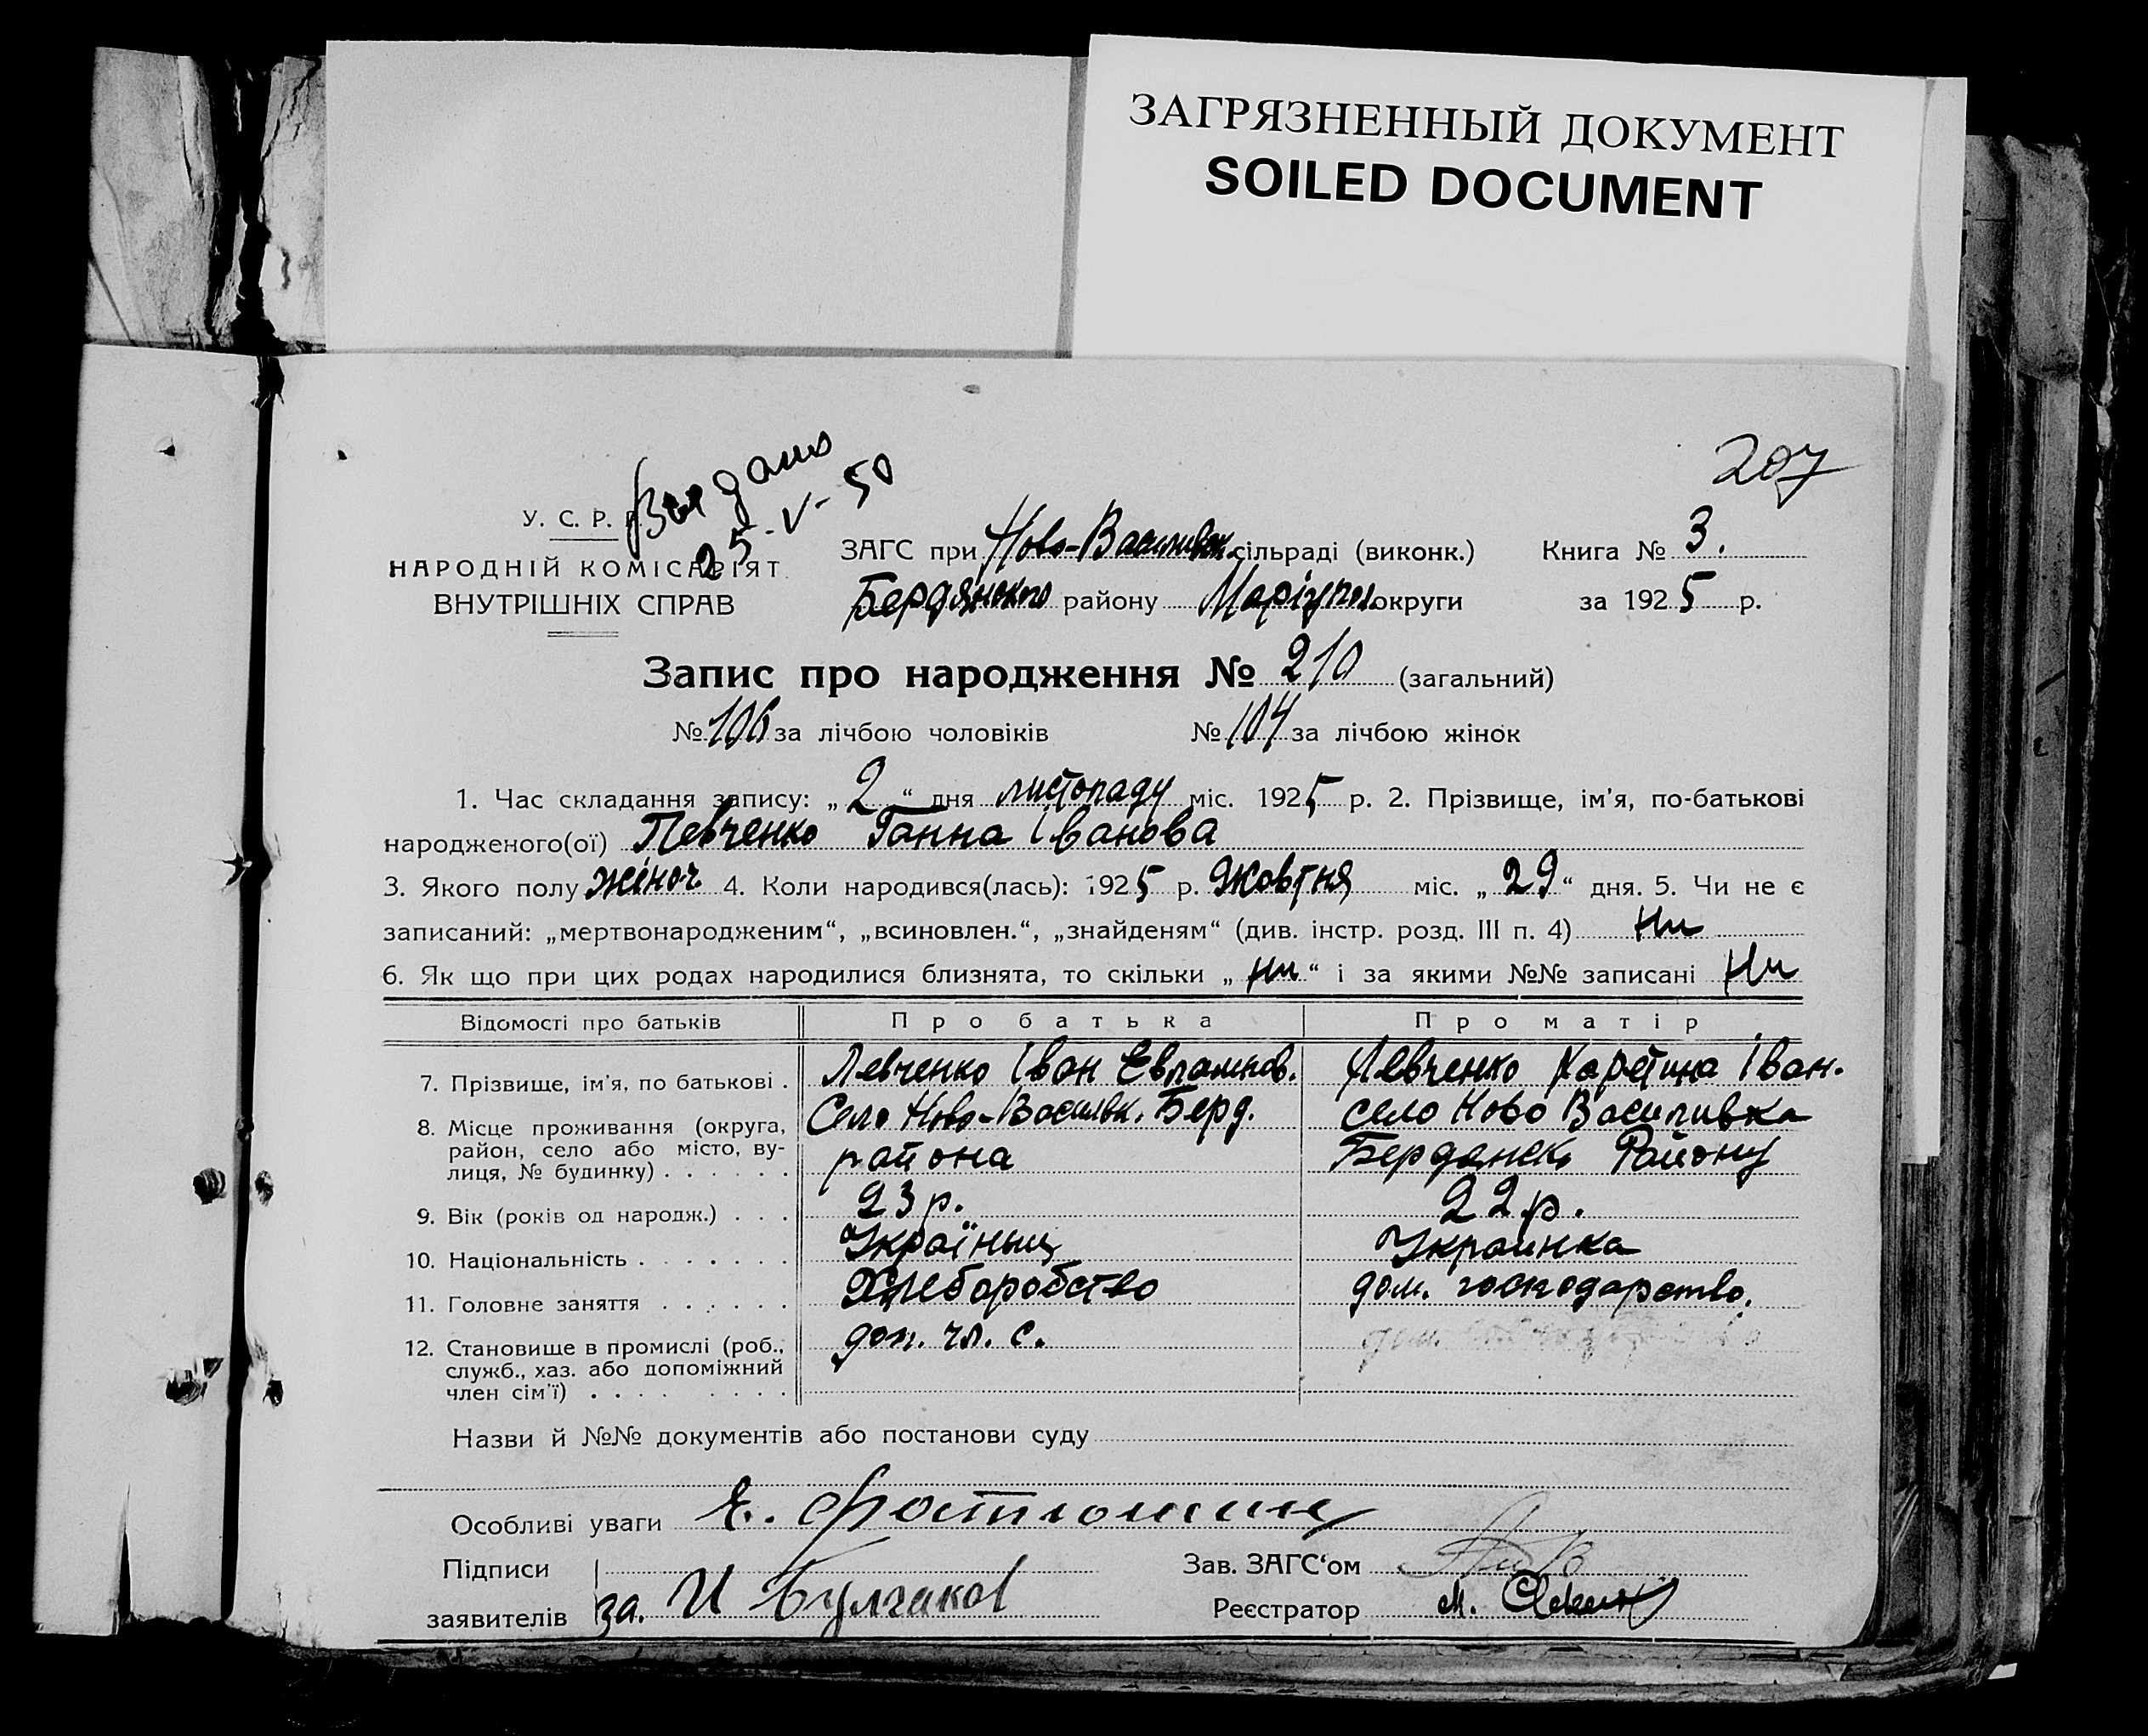 ЗАГРЯЗНЕННЫЙ ДОКУМЕНТ
SOILED DOCUMENT
207
Выдано
25-V-50
У. С. Р. Р.
НАРОДНІЙ КОМІСАРІЯТ
ВНУТРІШНІХ СПРАВ
ЗАГС при Ново-Василівск. сільраді (виконк.) Книга № 3.
Бердянского району Маріупол. округи за 1925 р.
Запис про народження № 210 (загальний)
№ 106 за лічбою чоловіків № 104 за лічбою жінок
1. Час складання запису: „2“ дня листопаду міс. 1925 р. 2. Прізвище, ім'я, по-батькові
народженого(ої) Левченко Ганна Іванова
3. Якого полу жіноч. 4. Коли народився(лась): 1925 р. Жовтня міс. „29“ дня. 5. Чи не є
записаний: „мертвонародженим“, „всиновлен.“, „знайденям“ (див. інстр. розд. III п. 4) Ни
6. Як що при цих родах народилися близнята, то скільки „Ни“ і за якими №№ записані Ни
Відомості про батьків Про батька Про матір
7. Прізвище, ім'я, по батькові . Левченко Іван Евлампов. Левченко Іван.
8. Місце проживання (округа, район, село або місто, вулиця, № будинку) . . . . . . Село Ново-Васильк. Берд. района село Ново Василивка Бердянск. Району
9. Вік (років од народж.) . . . 23 р. 22 р.
10. Національність . . . . . . . Україныц Украинка
11. Головне заняття . . . . . . Хлеборобство дом. господарство.
12. Становище в промислі (роб., служб., хаз. або допоміжний член сім'ї) . . . . . . . . . доп. чл. с.
Назви й №№ документів або постанови суду
Особливі уваги Е.
Підписи Зав. ЗАГС'ом
заявителів за. И Булгаков Реєстратор М.